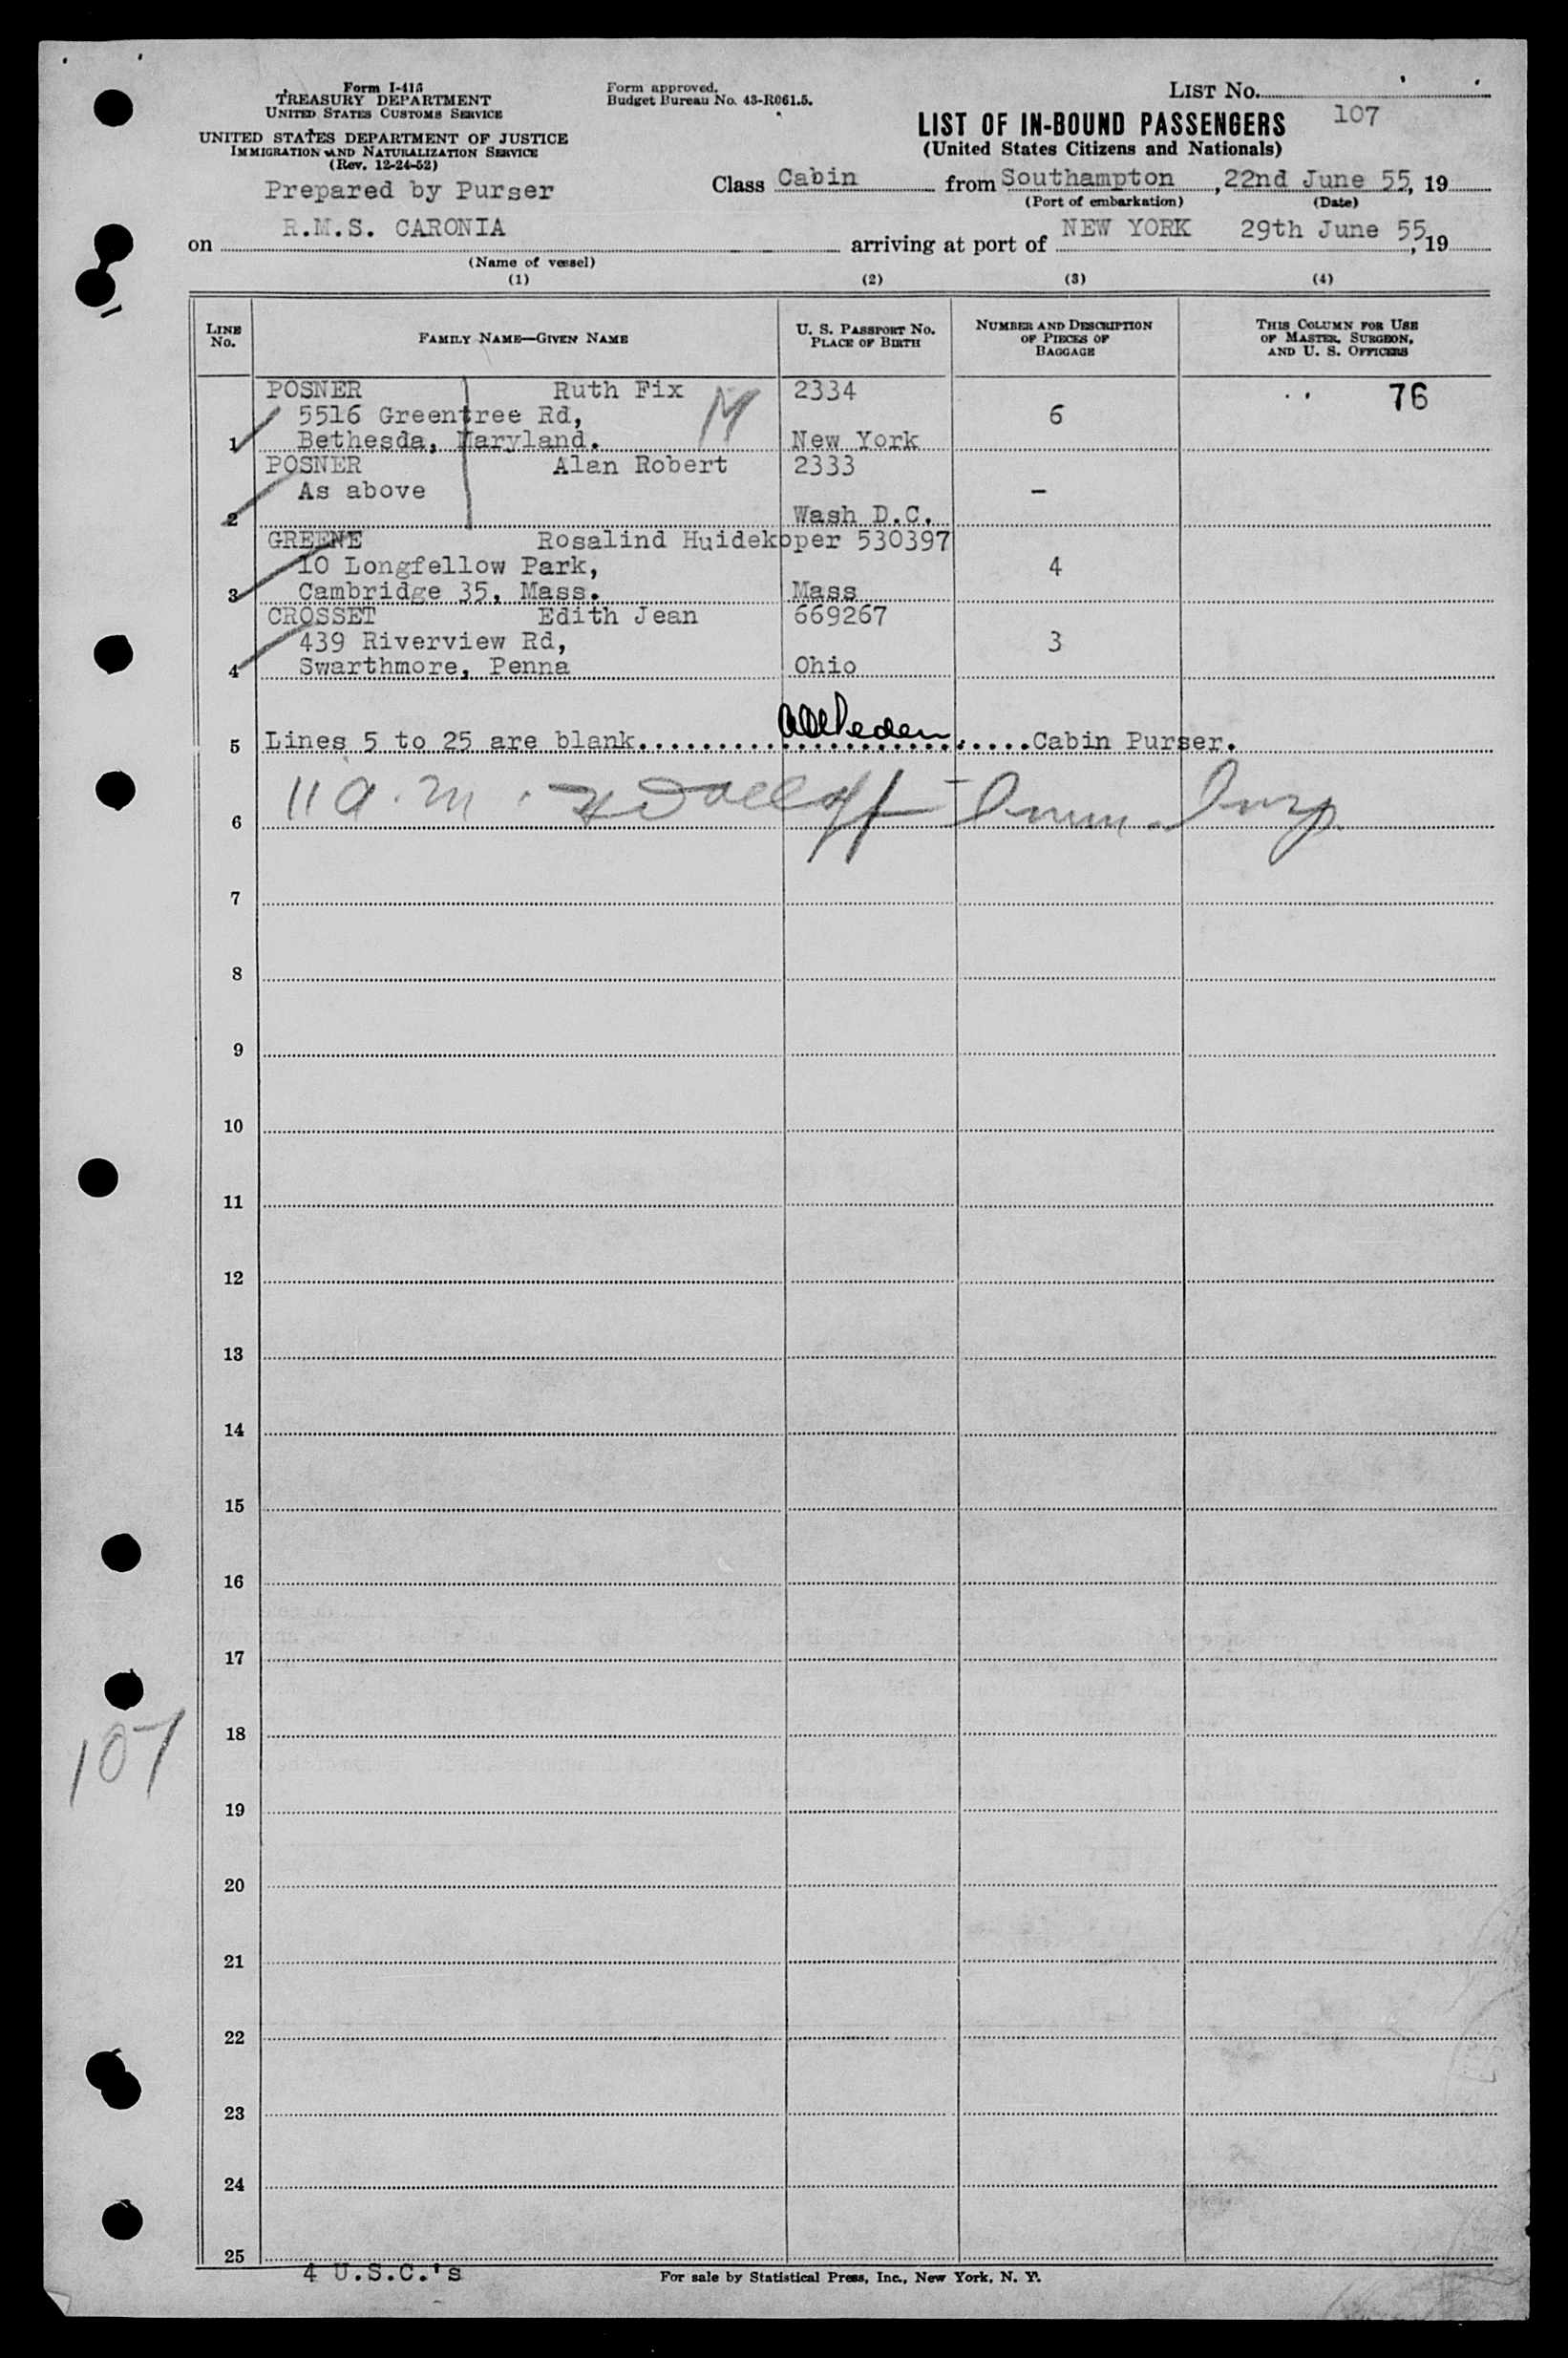 Form I-415
TREASURY DEPARTMENT
UNITED STATES CUSTOMS SERVICE
UNITED STATES DEPARTMENT OF JUSTICE
IMMIGRATION AND NATURALIZATION SERVICE
(Rev. 12-24-52)
Form approved.
Budget Bureau No. 43-R061.5.
LIST No.
107
LIST OF IN-BOUND PASSENGERS
(United States Citizens and Nationals)
Prepared by Purser
Class Cabin from Southampton, 22nd June 55, 19
(Port of embarkation) (Date)
on R.M.S. CARONIA arriving at port of NEW YORK 29th June 55, 19
(Name of vessel)
(1) (2) (3) (4)
LINE No.
FAMILY NAME—GIVEN NAME
U. S. PASSPORT No.
PLACE OF BIRTH
NUMBER AND DESCRIPTION
OF PIECES OF
BAGGAGE
THIS COLUMN FOR USE
OF MASTER, SURGEON,
AND U. S. OFFICERS
POSNER Ruth Fix M 2334 76
5516 Greentree Rd, 6
1 Bethesda, Maryland. New York
POSNER Alan Robert 2333
As above -
2 Wash D.C.
GREENE Rosalind Huidekoper 530397
10 Longfellow Park, 4
3 Cambridge 35, Mass. Mass
CROSSET Edith Jean 669267
439 Riverview Rd, 3
4 Swarthmore, Penna Ohio
5 Lines 5 to 25 are blank. Cabin Purser.
11 a.m. Imm. Insp.
6
7
8
9
10
11
12
13
14
15
16
17
18
107
19
20
21
22
23
24
25
4 U.S.C.'s
For sale by Statistical Press, Inc., New York, N. Y.